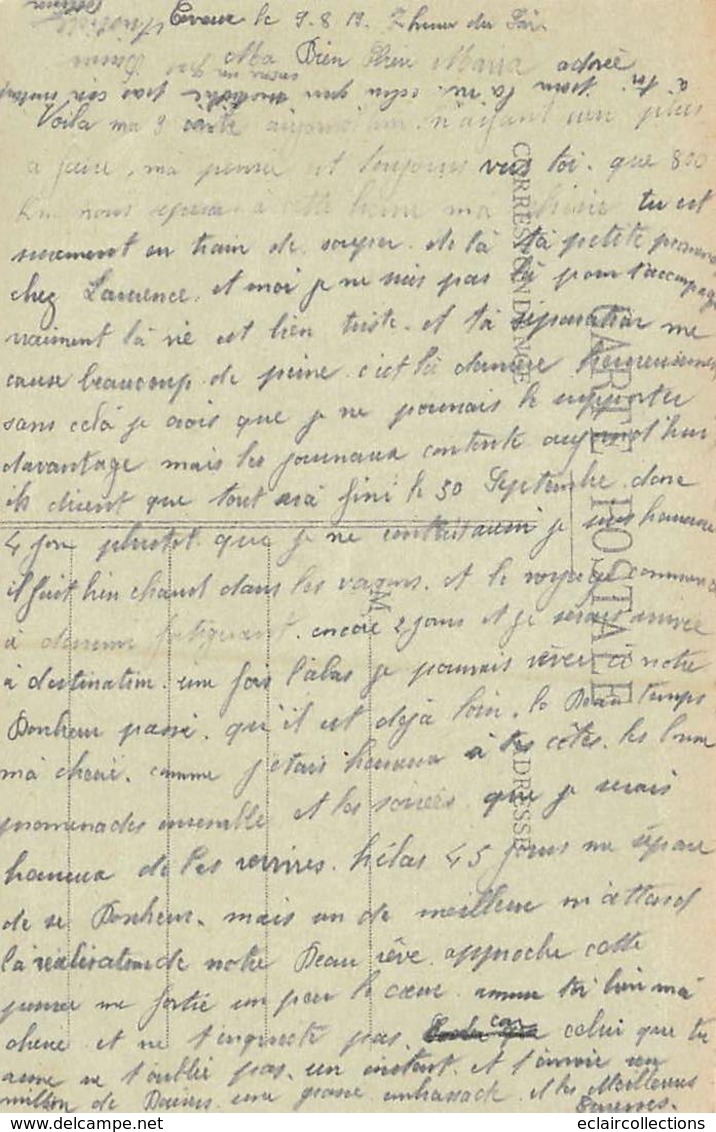 Evreux le 9.8.19. 7 heures du Soir
Ma Bien Chère Maria adorée
Voila ma 3 carte aujourd'hui n'ayant rien plus
a faire, ma pensée est toujours vers toi. que 800
km nous sépare à cette heure ma chérie tu est
surement en train de souper. de là ta petite promenade
chez Laurence. et moi je ne suis pas là pour t'accompagner
vraiment la vie est bien triste. et ta séparation me
cause beaucoup de peine c'est la dernière heureusement
sans celà je crois que je ne pourrais le supporter
davantage mais les journaux contents aujourd'hui
ils disent que tout sera fini le 30 Septembre donc
4 jours plutot que je ne
il fait bien chaud dans les vagons. et le voyage commence
à devenir fatiguant. encore 2 jours et je serais arrivé
à destination. une fois labas je pourrais rever à notre
Bonheur passé. qu'il est déjà loin. le Beau temps
ma cherie. comme j'étais heureux à tes côtés. les
promenades ensemble et les soirées que je serais
heureux de les revivres. hélas 45 jours me sépare
de se Bonheur. mais un de meilleur m'attend
la réalisation de notre Beau rêve approche cette
pensée me fortie un peu le cœur. aime toi bien ma
cherie et ne t'inquiete pas. car celui que tu
aime ne t'oublie pas un instant. et t'envoie un
million de Baisers. une grosse embrassade. et les Meilleures
Caresses.
CORRESPONDANCE
CARTE POSTALE
ADRESSE
M
www.delcampe.net
eclaircollections